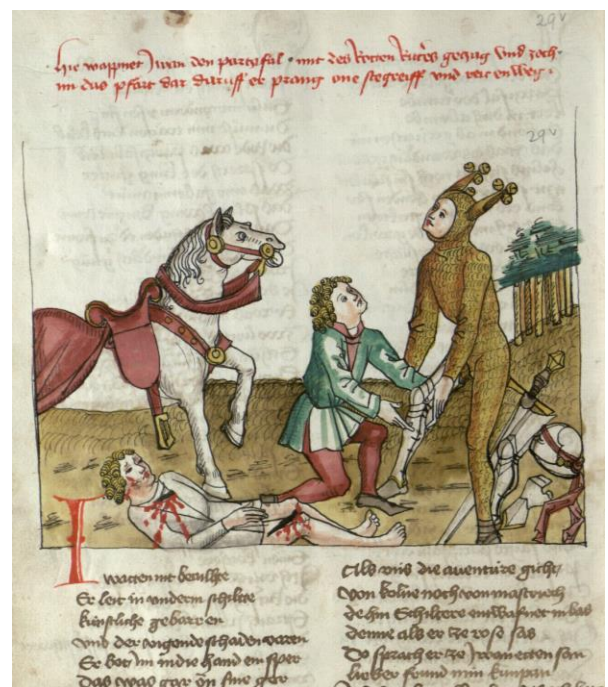 29v
hie wappnet Iwan den partzifal · mit des Rotten Ritters gezug vnd zoch ·
im das pfart dar daruff er sprang one stegreiff vnd reit en weg ·
29v
I
wanet mit
Er leit in vnderm schilte
künstliche gebarren
vnd der jugende schaden varen
Er bot im in die hand ein sper
Das was gar on sine ger
Als vns die auentúre gicht
Von kolne noch von mastriech
dehein Schiltere entwarf in bas
denne als er ze rose sas
Do sprach er ze Iwanetten san
lieber frúnd min kumpan